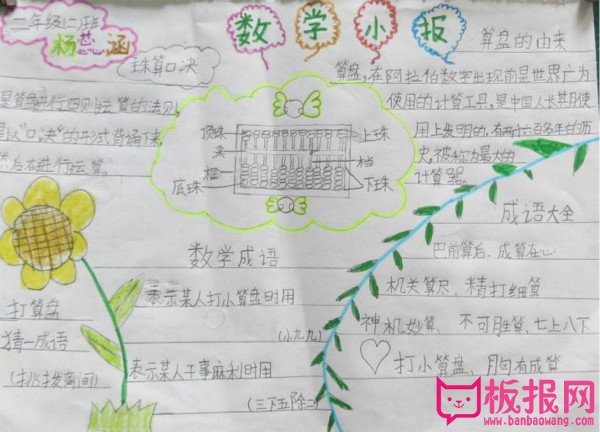 二年级(二)班
杨
涵
数学小报
珠算口决
算盘的由来
算盘,在阿拉伯数字出现前是世界广为
使用的计算工具,是中国人长其月使
用上发明的,有两千六百多年的历
史,被称为最大的
计算器。
是算盘进行四则运算的法则,
是以"口决"的形式背诵下来,
然后在进行运算。
顶珠
梁
框
底珠
上珠
档
下珠
成语大全
巴前算后、成算在心
机关算尽、精打细算
神机妙算、不可胜算、七上八下
打小算盘、胸有成算
数学成语
表示某人打小算盘时用
(小九九)
表示某人干事麻利时用
(三下五除二)
打算盘
猜一成语
(挑拨离间)
板报网
www.banbaowang.com